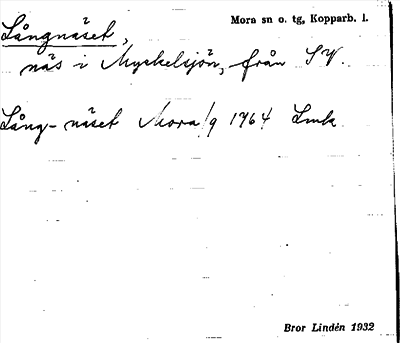 Mora sn o. tg, Kopparb. l.
Långnäset,
näs i Myckelsjön, från SV.
Lång-näset Mora/9 1764 Lmk
Bror Lindén 1932